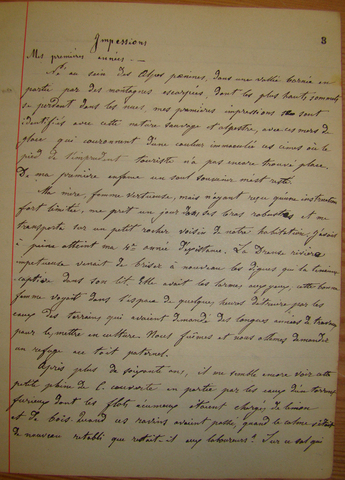 3
Impressions
Mes premières années. —
Né au sein des Alpes pennines, dans une vallée bornée en
partie par des montagnes escarpées, dont les plus hauts sommets
se perdent dans les nues, mes premières impressions se sont
identifiées avec cette nature sauvage et alpestre, avec ces mers de
glace qui couronnent d'une couleur immaculée les cimes où le
pied de l'imprudent touriste n'a pas encore trouvé place.
De ma première enfance un seul souvenir m'est resté.
Ma mère, femme vertueuse, mais n'ayant reçu qu'une instruction
fort limitée, me prit un jour dans ses bras robustes et me
transporta sur un petit rocher voisin de notre habitation. J'avais
à peine atteint ma année d'existence. La Dranse rivière
impétueuse venait de briser à nouveau les digues qui la tenaient
captive dans son lit. Elle avait les larmes aux yeux, cette bonne
femme voyait dans l'espace de quelques heures détruire par les
eaux des terrains qui avaient demandé des longues années de travaux
pour les mettre en culture. Nous fuîmes et nous allâmes demander
un refuge au toit paternel.
Après plus de soixante ans, il me semble encore voir cette
petite plaine de C. couverte en partie par les eaux d'un torrent
furieux dont les flots écumeux étaient chargés de limon
et de bois. Quand ces ravins avaient passé, quand le calme s'était
de nouveau rétabli que restait-il aux laboureurs? Sur un sol qui